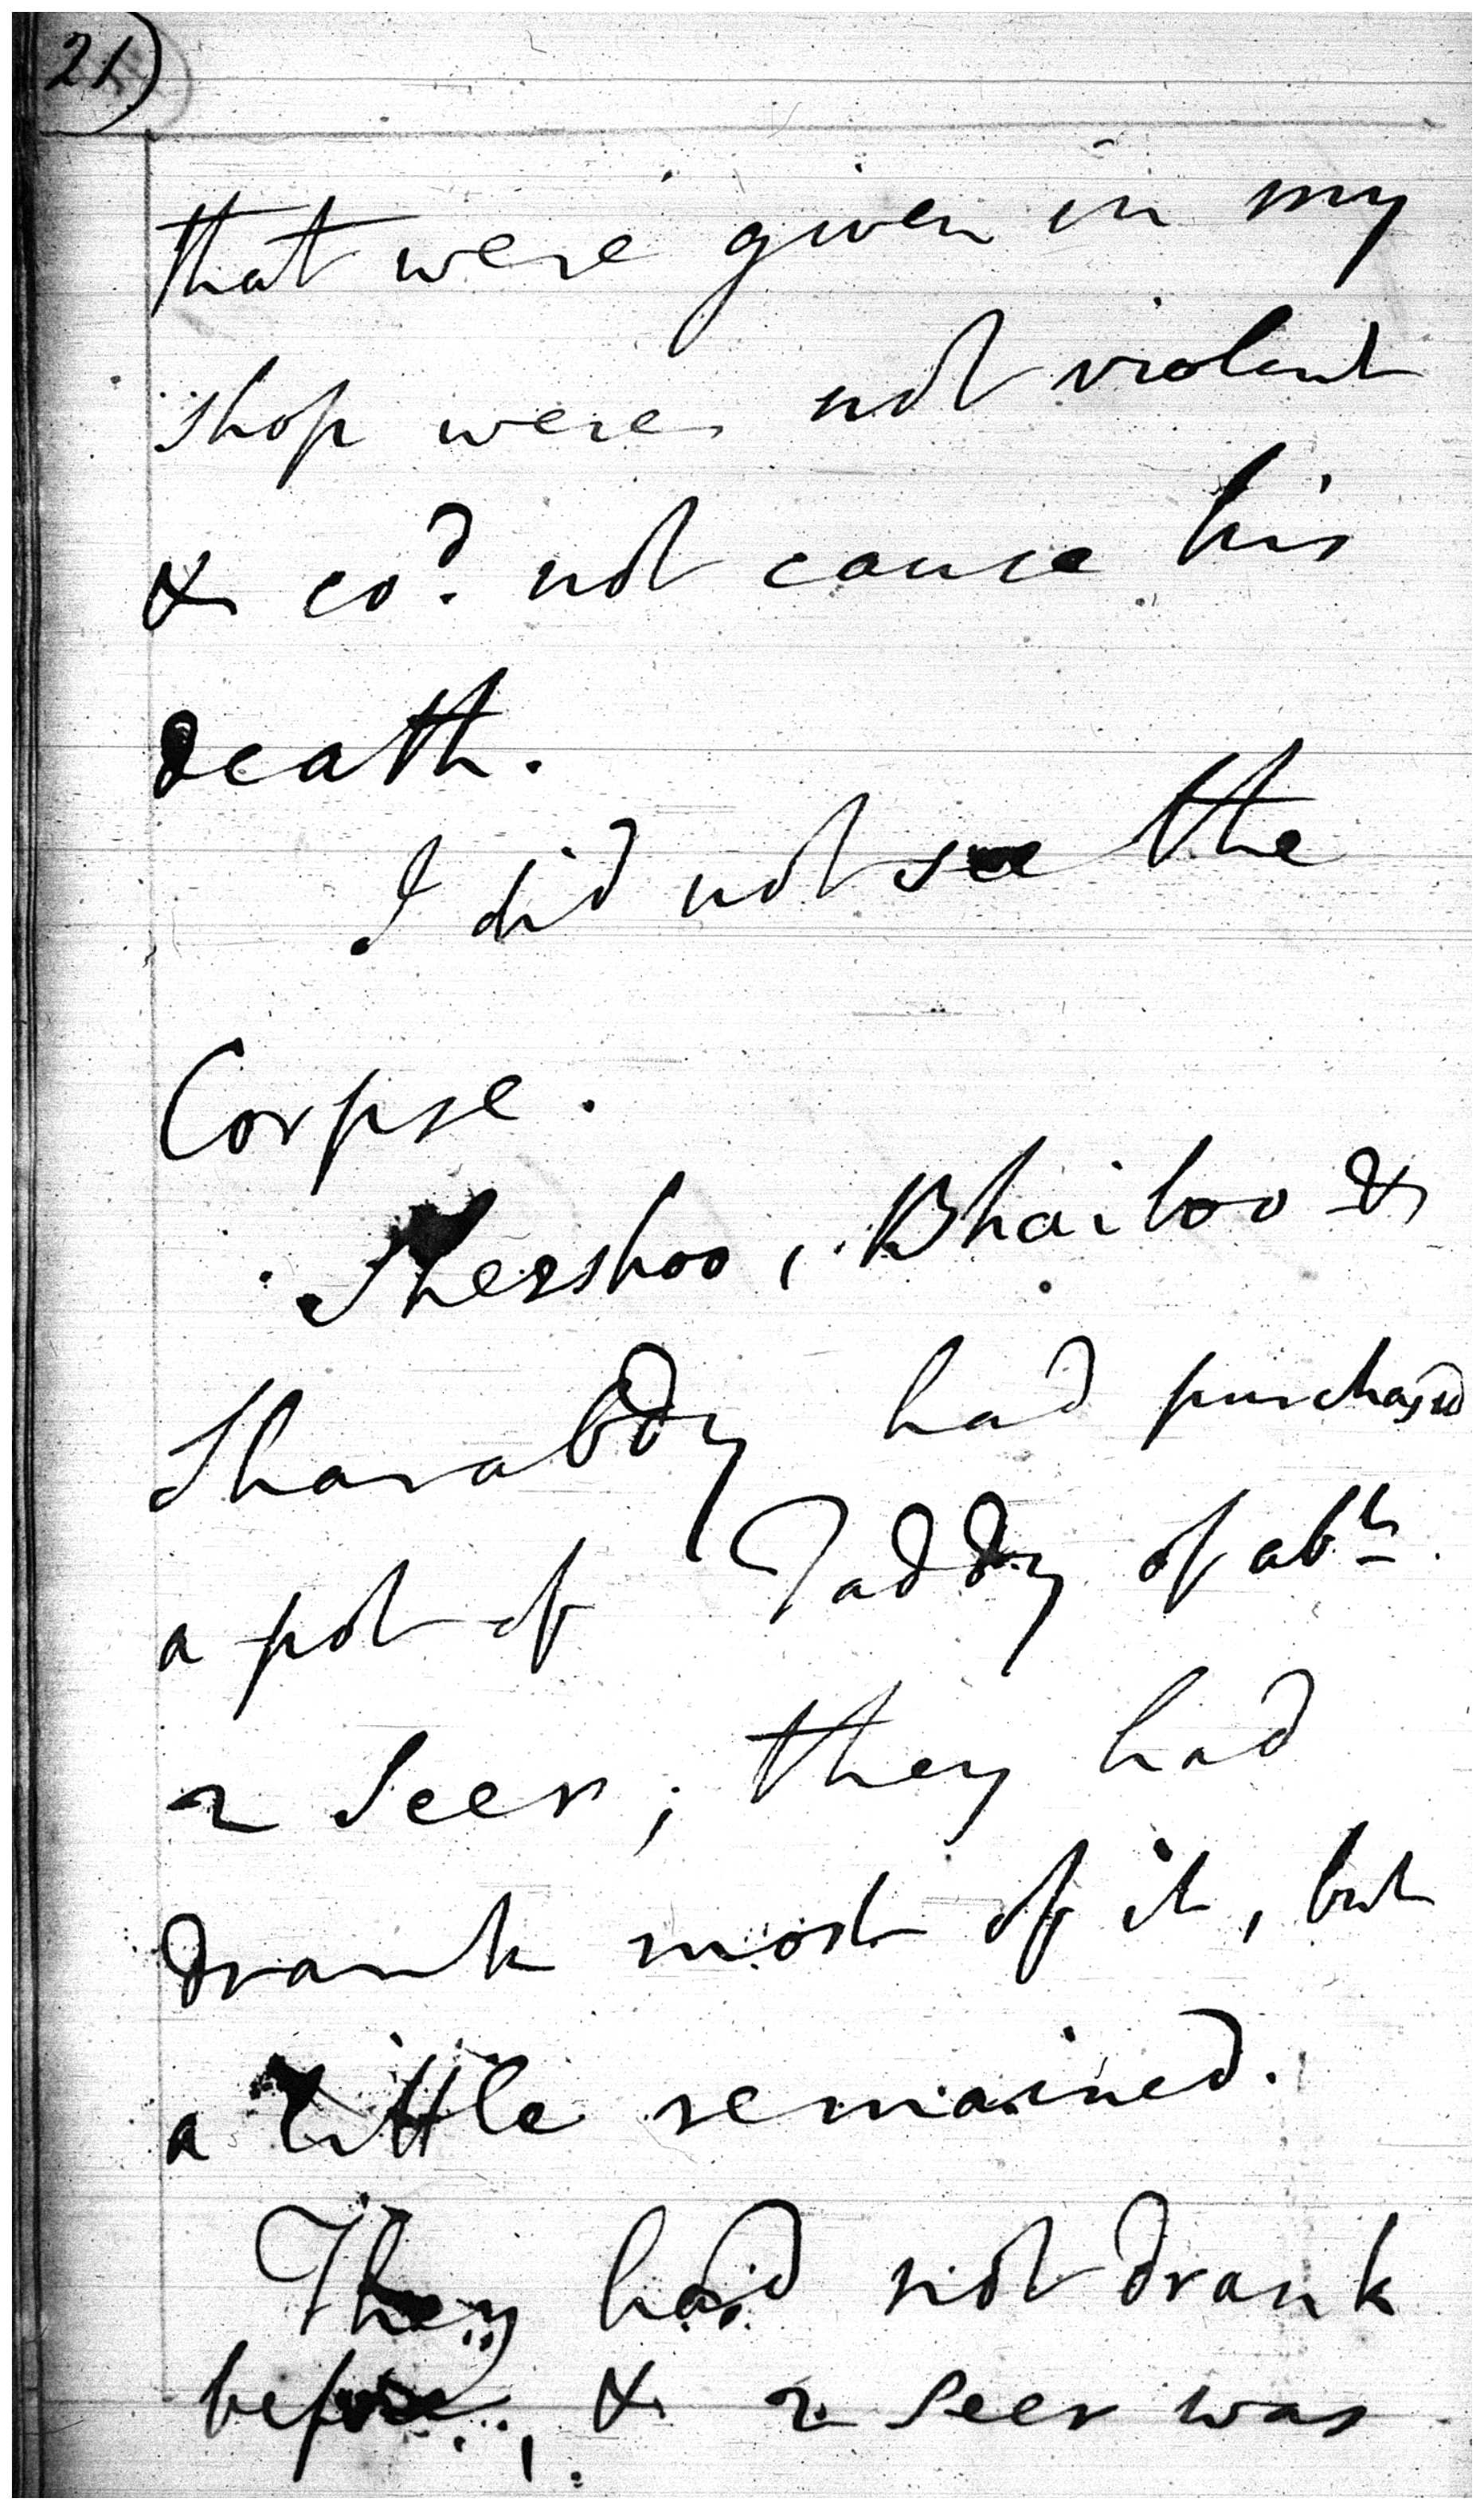 21)
that were given in my
shop were not violent
& cod. not cause his
death.
I did not see the
Corpse.
Shesshoo, Bhailoo &
Sharabdy had purchased
a pot of Taddy of abt.
2 Seer; they had
drank most of it, but
a little remained.
They had not drank
before, & 2 Seer was